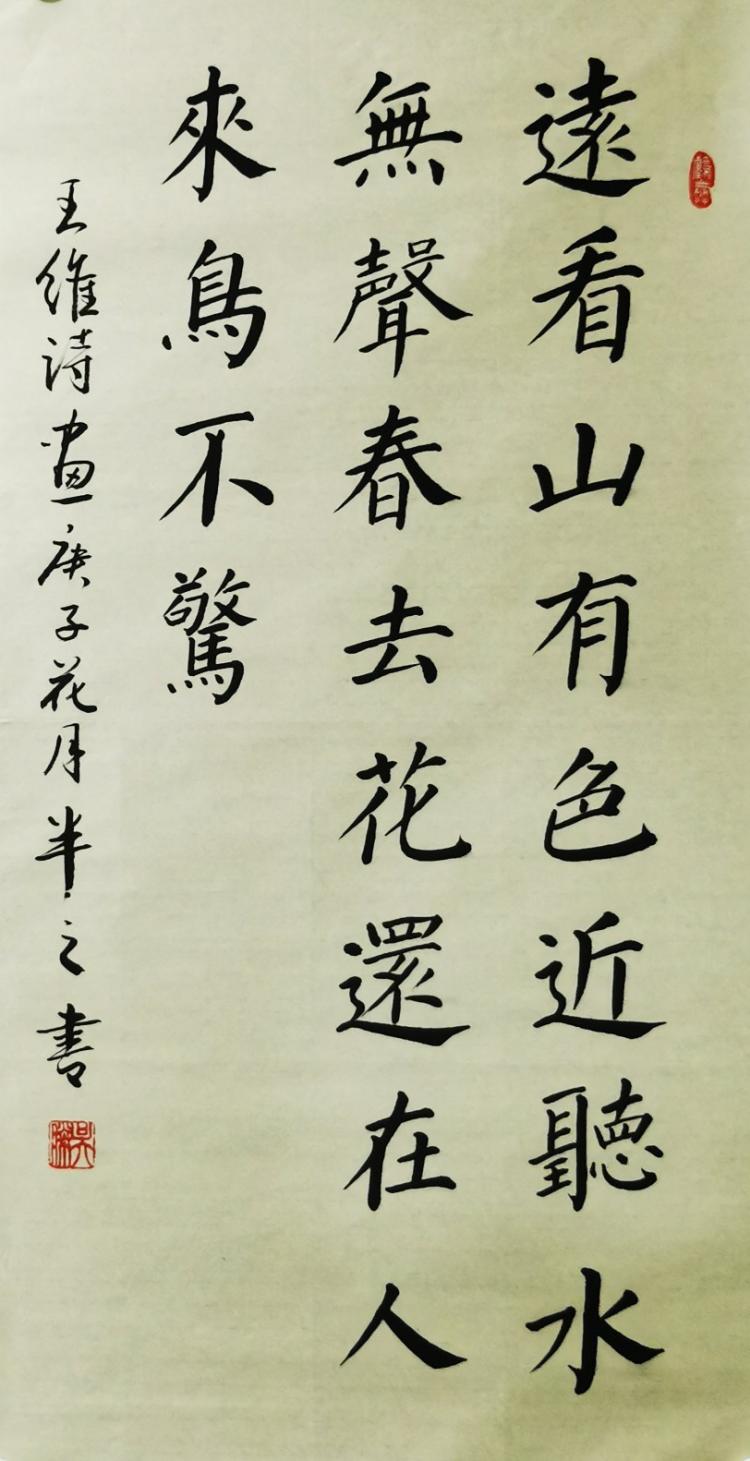 遠看山有色近聽水
無聲春去花還在人
來鳥不驚
王維詩畫庚子花月半之書